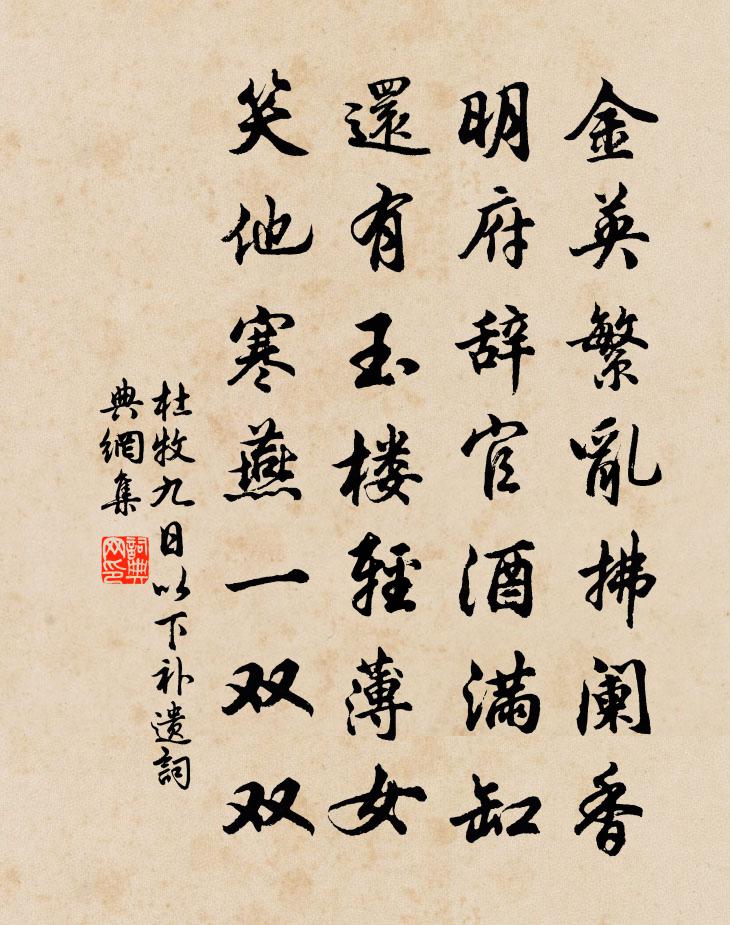 金英繁亂拂阑香
明府辞官酒满缸
還有玉楼輕薄女
笑他寒燕一双双
杜牧九日以下补遗詞
典網集
詞典
网印